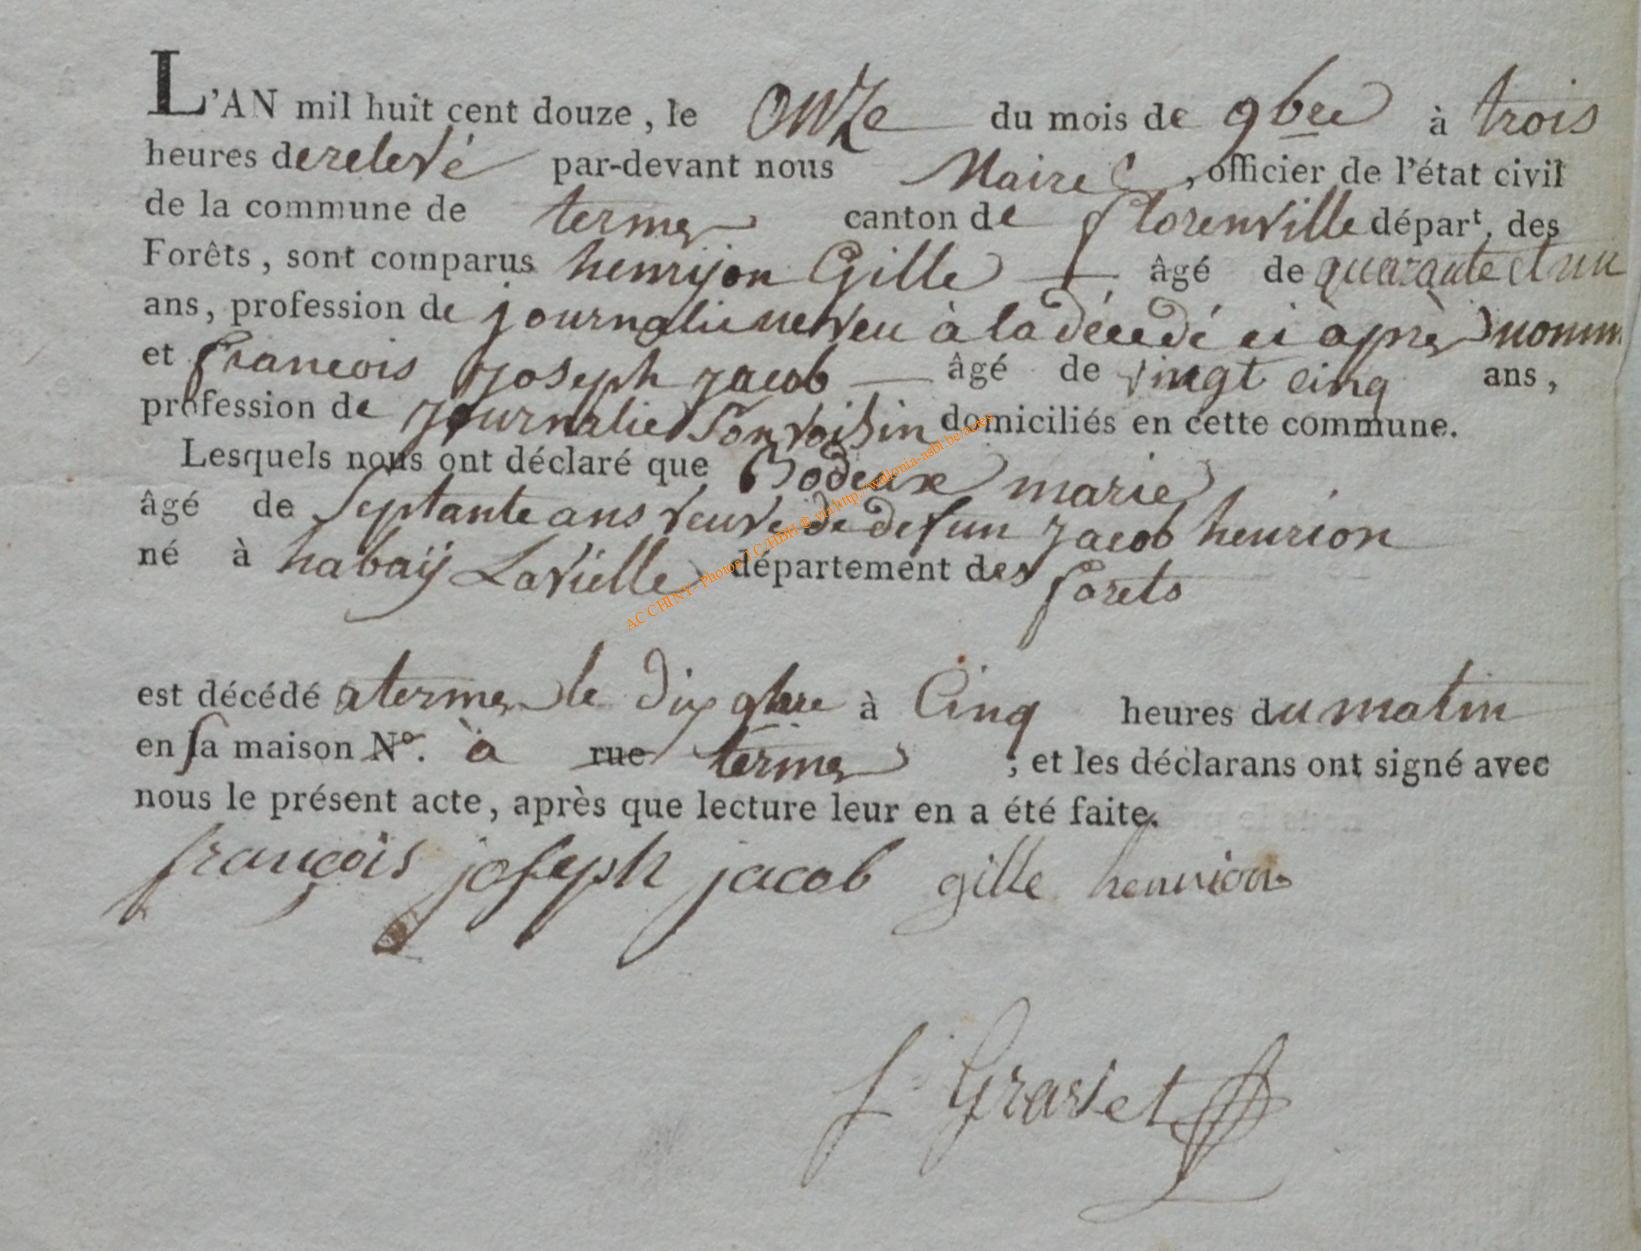 L'AN mil huit cent douze, le onze du mois de 9bre à trois
heures de relevé par-devant nous Maire, officier de l'état civil
de la commune de termes canton de florenville départ. des
Forêts, sont comparus henrijon Gille âgé de quarante et un
ans, profession de journalie neveu à la décedé ci après nomm
et francois joseph jacob âgé de vingt cinq ans,
profession de journalier son voisin domiciliés en cette commune.
Lesquels nous ont déclaré que Bodeux marie
âgé de septante ans veuve de defun jacob henrion
né à habaÿ Lavielle département des forets
est décédé a termes le dix 9bre à cinq heures du matin
en sa maison N°. à rue termes, et les déclarans ont signé avec
nous le présent acte, après que lecture leur en a été faite.
françois joseph jacob gille henrion
f. Gravet
AC CHINY - Photos via http://wallonia-asbl.be/actes